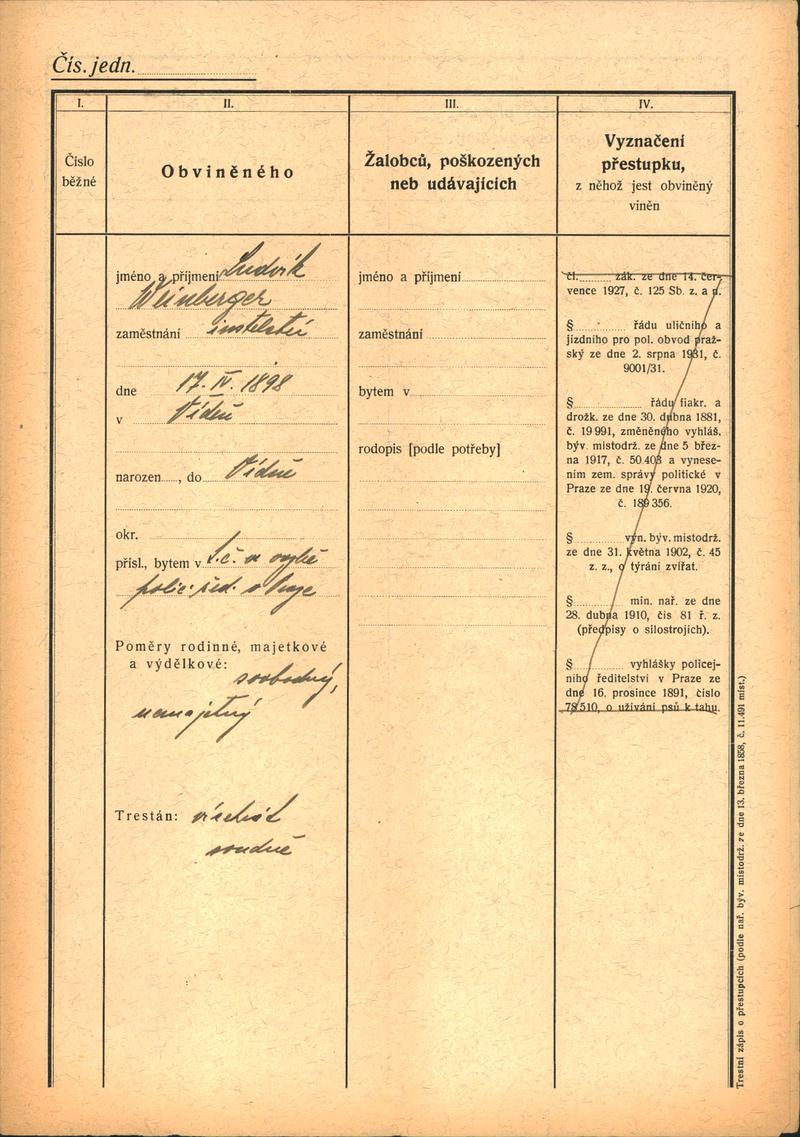 Čís. jedn.
I.
II.
III.
IV.
Číslo
běžné
Obviněného
Žalobců, poškozených
neb udávajících
Vyznačení
přestupku,
z něhož jest obviněný
viněn
jméno a příjmení Ludvík
Weinberger
zaměstnání
dne 17. IV. 1898
v Vídni
narozen......, do Vídně
okr.
přísl., bytem v t. č. ve vazbě
polic. řed. v Praze
Poměry rodinné, majetkové
a výdělkové:
svobodný,
nemajetný
Trestán: víckrát
soudně
jméno a příjmení
zaměstnání
bytem v
rodopis [podle potřeby]
čl. zák. ze dne 14. čer-
vence 1927, č. 125 Sb. z. a n.
§ řádu uličního a
jízdního pro pol. obvod praž-
ský ze dne 2. srpna 1931, č.
9001/31.
§ řádu fiakr. a
drožk. ze dne 30. dubna 1881,
č. 19 991, změněného vyhláš.
býv. místodrž. ze dne 5 břez-
na 1917, č. 50.403 a vynese-
ním zem. správy politické v
Praze ze dne 19. června 1920,
č. 189 356.
§ výn. býv. místodrž.
ze dne 31. května 1902, č. 45
z. z., o týrání zvířat.
§ min. nař. ze dne
28. dubna 1910, čís 81 ř. z.
(předpisy o silostrojích).
§ vyhlášky policej-
ního ředitelství v Praze ze
dne 16. prosince 1891, číslo
78 510, o užívání psů k tahu.
Trestní zápis o přestupcích (podle nař. býv. místodrž. ze dne 13. března 1858, č. 11.491 míst.)